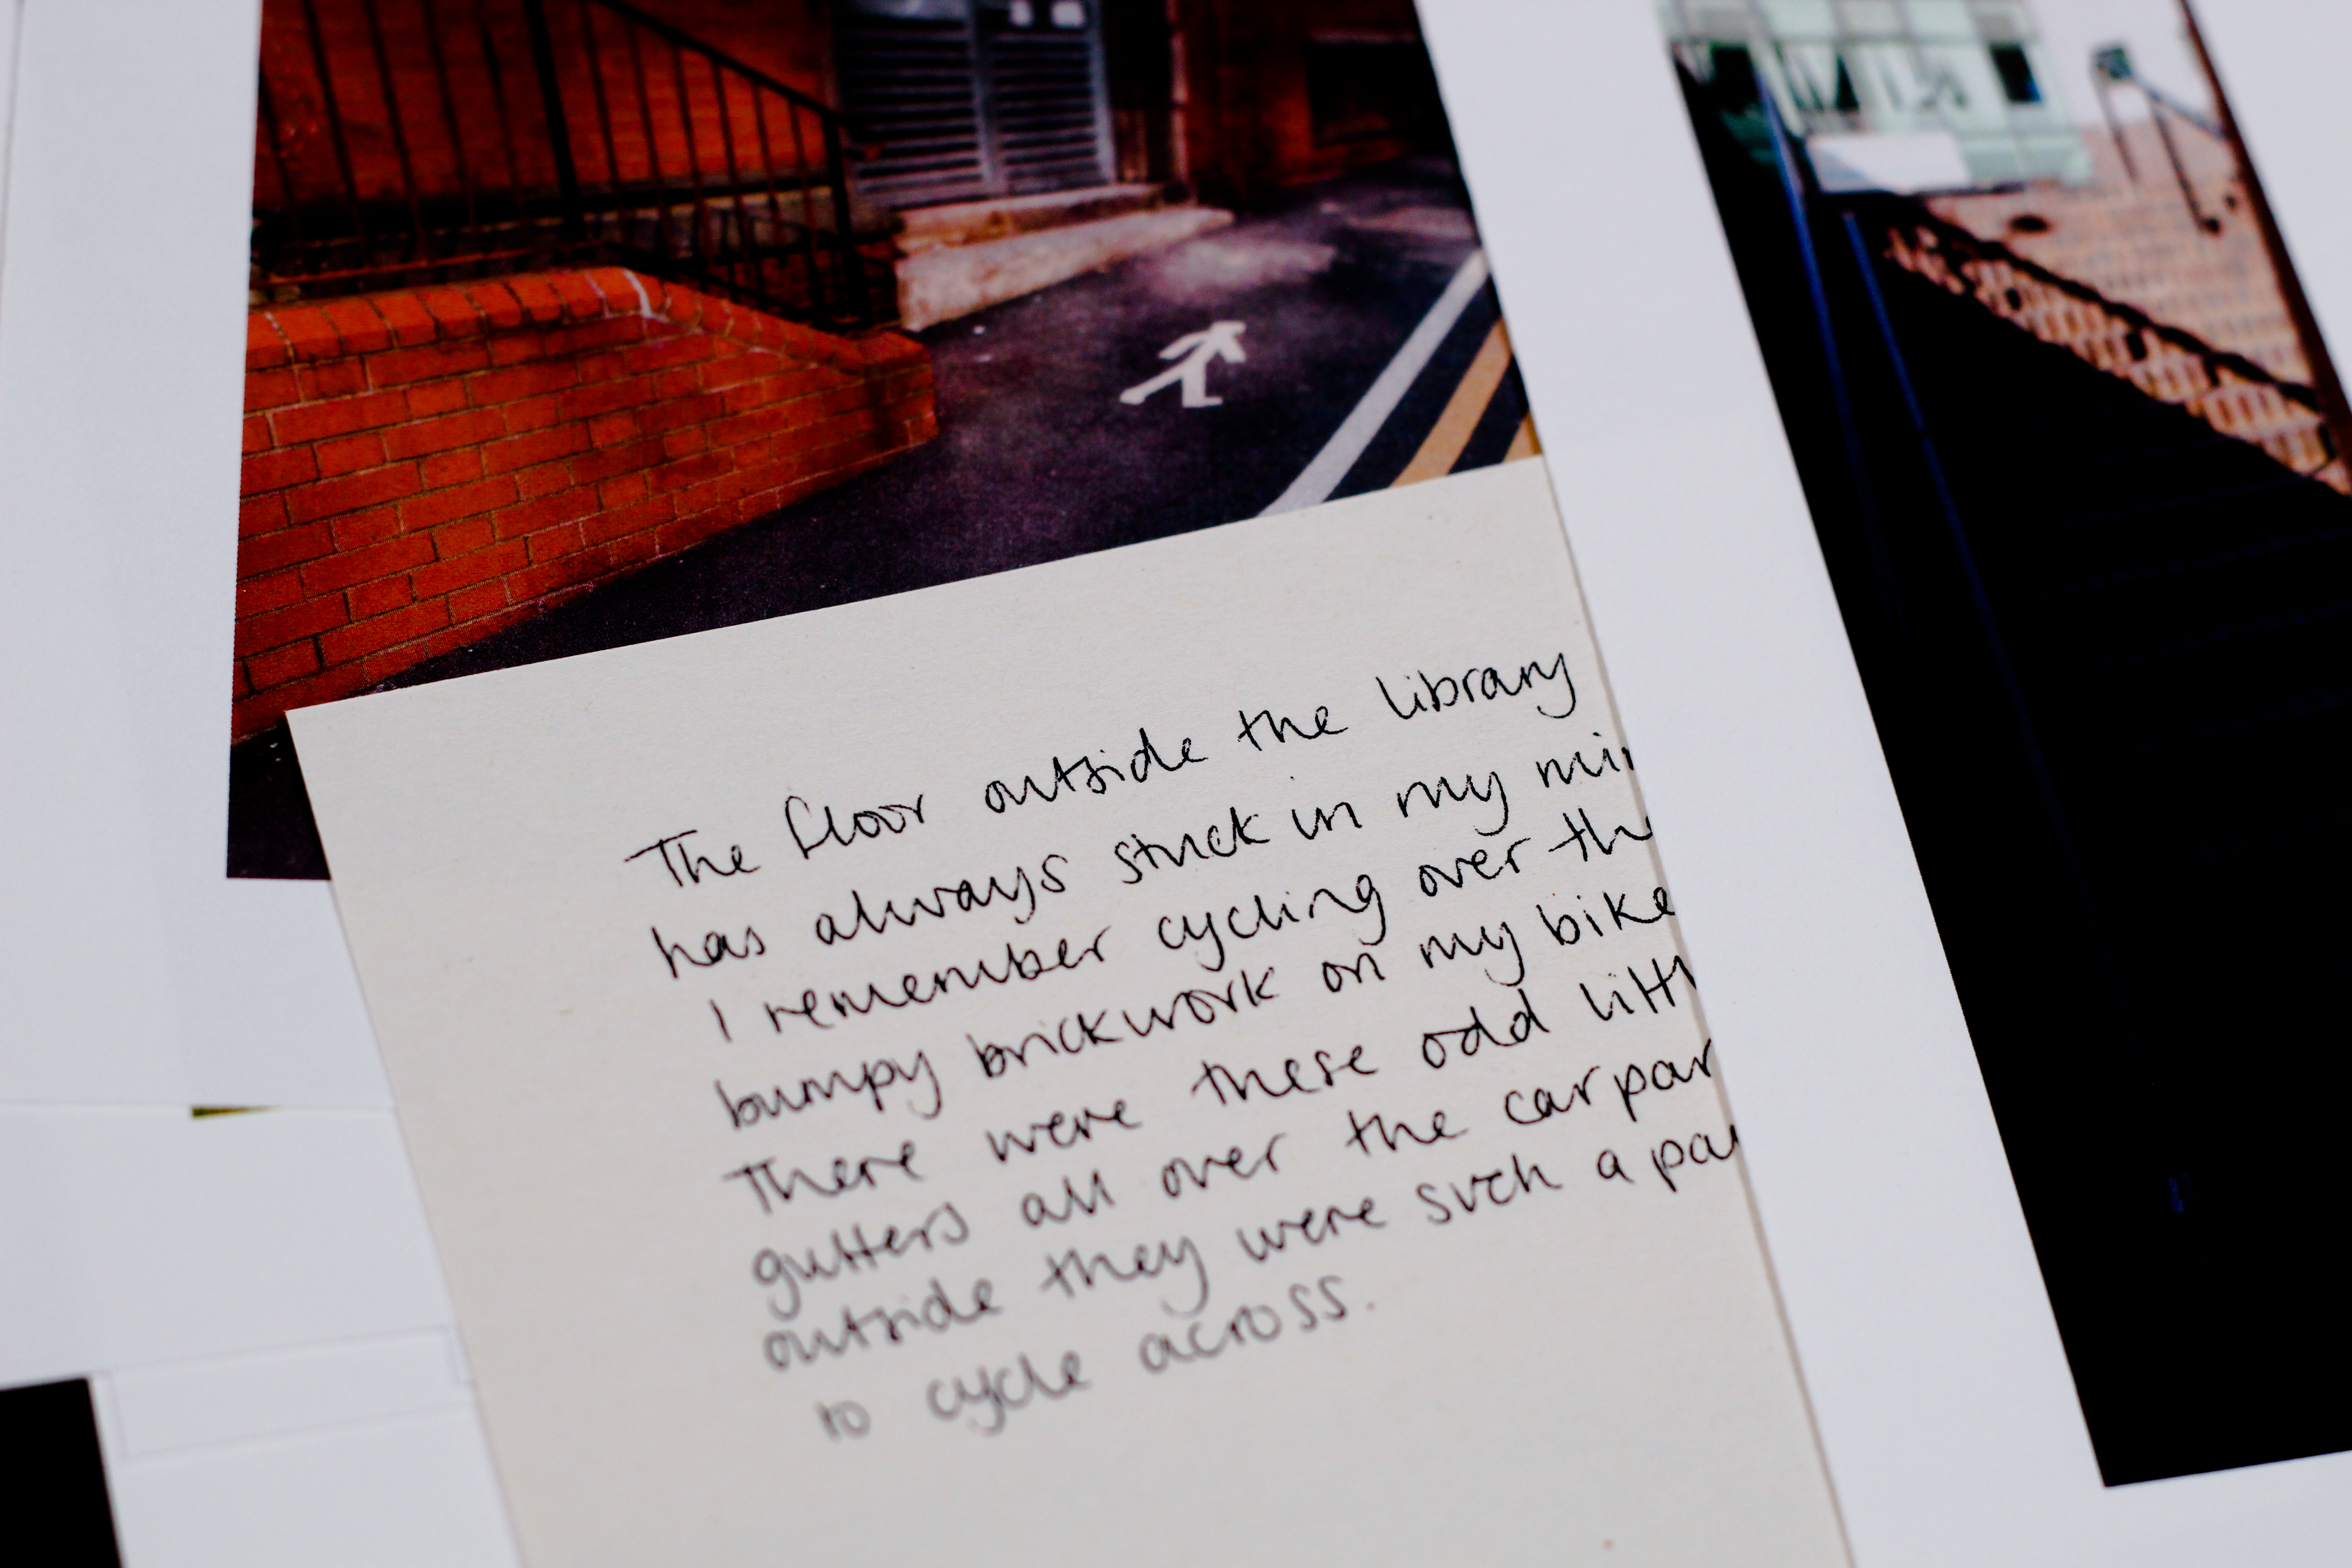 The floor outside the library
has always stuck in my min
I remember cycling over the
bumpy brickwork on my bike
There were these odd littl
gutters all over the car par
outside they were such a pai
to cycle across.